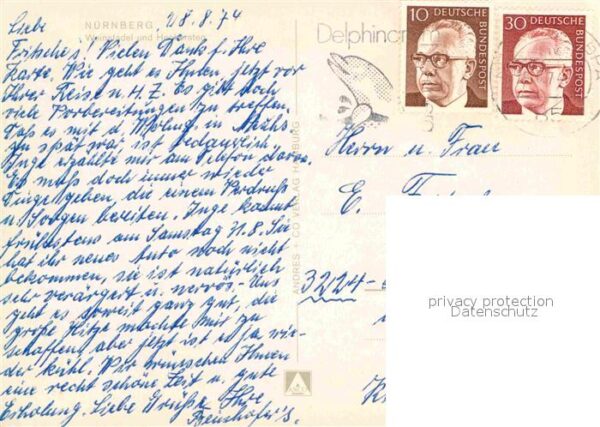 28.8.74
Liebe
NÜRNBERG
Weinstadel und Henkersteg
Fritsche's! Vielen Dank f. Ihre
Karte. Wie geht es Ihnen, jetzt vor
Ihrer Reise n. H. Z. Es gibt doch
viele Vorbereitungen zu treffen.
Daß es mit d. in
zu spät war, ist bedauerlich.
Inge erzählte mir am Telefon davon.
Es muß doch immer wieder
Dinge geben, die einem Verdruß
u. Sorgen bereiten. Inge kommt
frühstens am Samstag 31.8. Sie
hat ihr neues Auto noch nicht
bekommen, sie ist natürlich
sehr verärgert u. nervös. Uns
geht es soweit ganz gut, die
große Hitze machte mir zu
schaffen, aber jetzt ist es ja wie-
der kühl. Wir wünschen Ihnen
eine recht schöne Zeit u. gute
Erholung. Liebe Grüße Ihre
ANDRES + CO VERLAG HAMBURG
Delphin
10 DEUTSCHE BUNDESPOST
30 DEUTSCHE BUNDESPOST
Herrn u. Frau
E.
3224-
privacy protection
Datenschutz